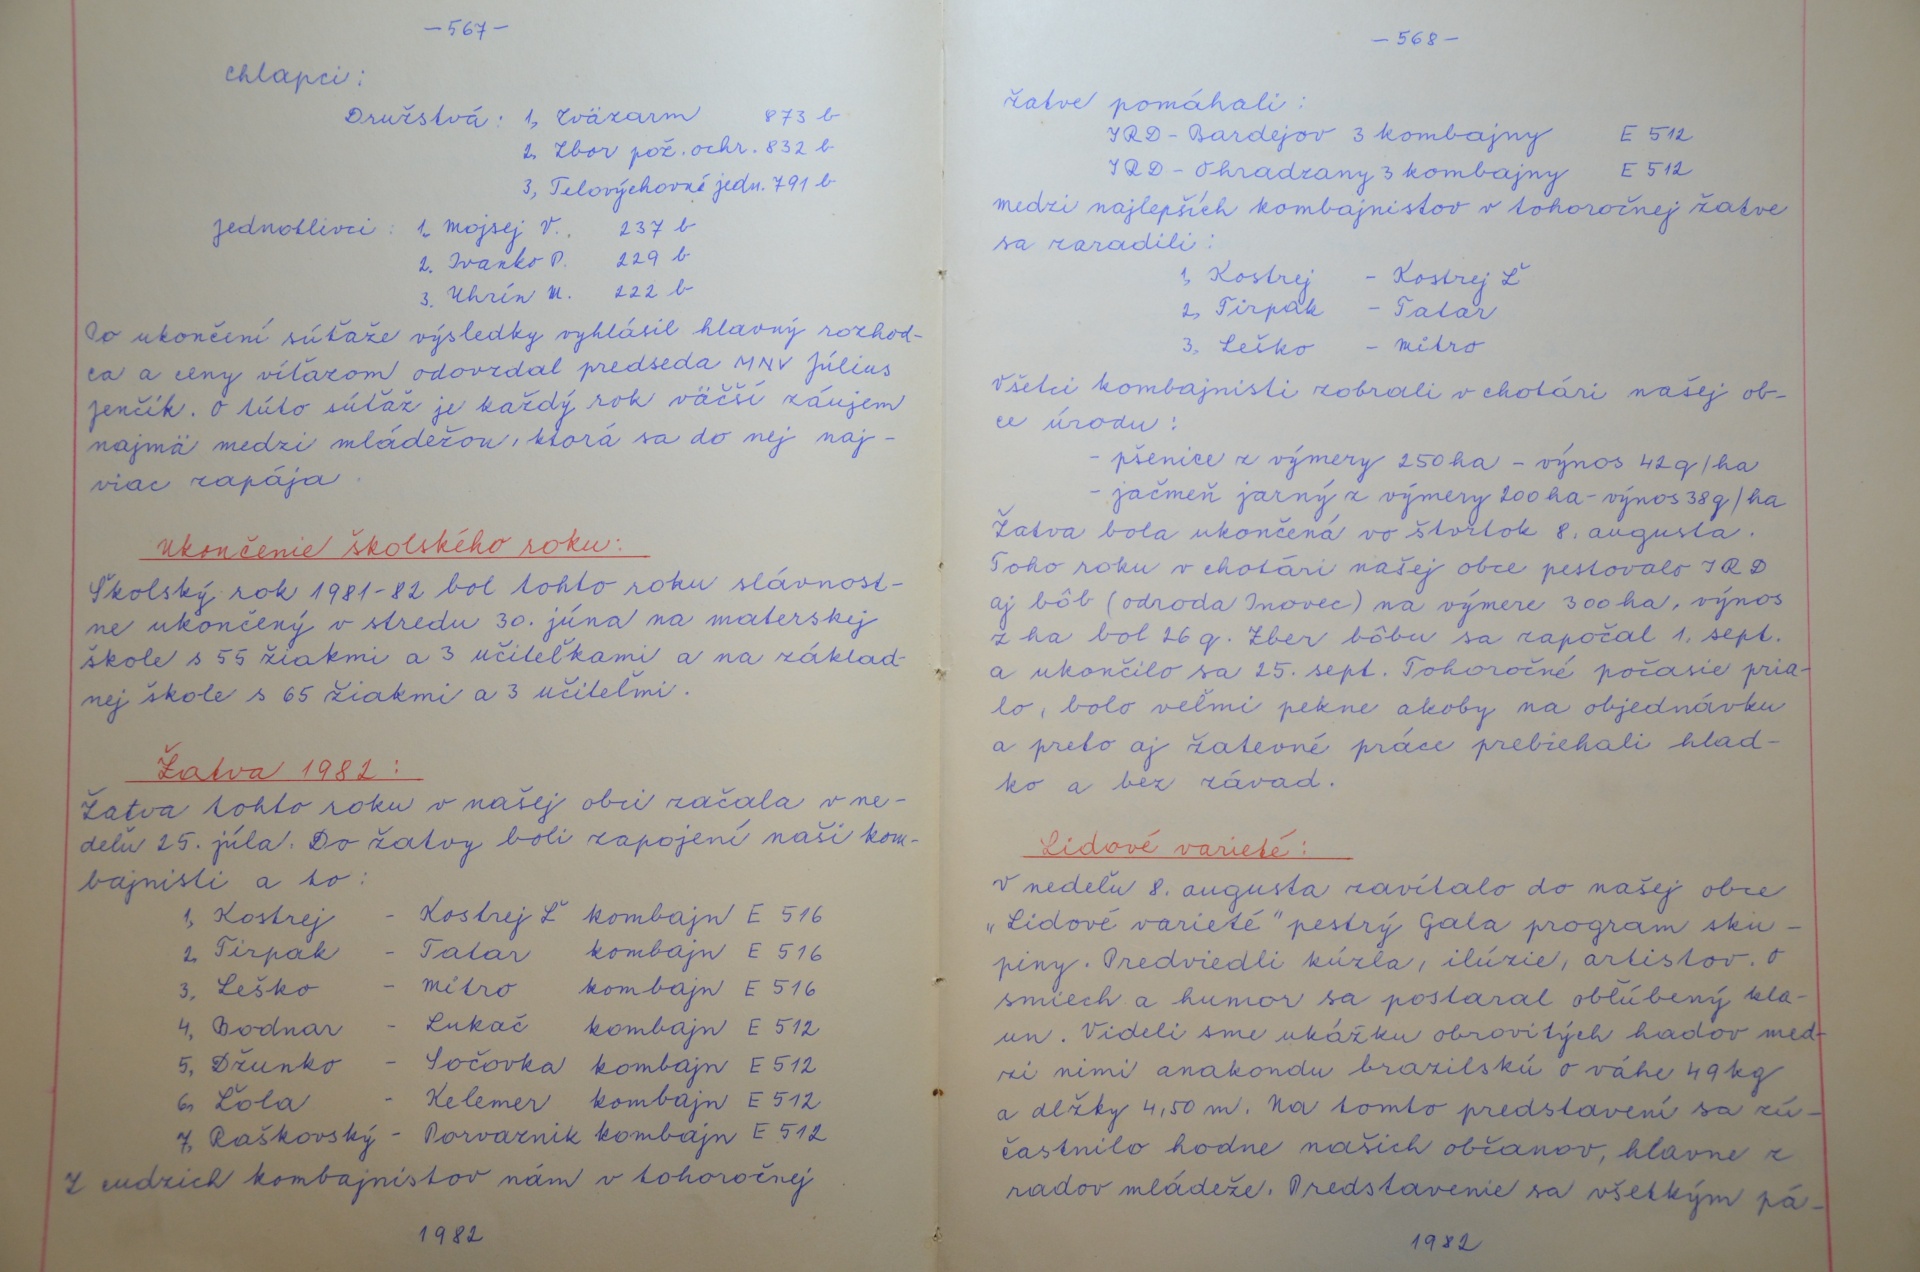 – 567 –
chlapci:
Družstvá: 1, Zväzarm 873 b
2, Zbor pož. ochr. 832 b
3, Telovýchovné jedn. 791 b
jednotlivci: 1. Mojsej V. 237 b
2. Ivanko P. 229 b
3. Uhrín M. 222 b
Po ukončení súťaže výsledky vyhlásil hlavný rozhod-
ca a ceny víťazom odovzdal predseda MNV Július
Jenčík. O túto súťaž je každý rok väčší záujem
najmä medzi mládežou, ktorá sa do nej naj-
viac zapája.
Ukončenie školského roku:
Školský rok 1981-82 bol tohto roku slávnost-
ne ukončený v stredu 30. júna na materskej
škole s 55 žiakmi a 3 učiteľkami a na základ-
nej škole s 65 žiakmi a 3 učiteľmi.
Žatva 1982:
Žatva tohto roku v našej obci začala v ne-
deľu 25. júla. Do žatvy boli zapojení naši kom-
bajnisti a to:
1, Kostrej – Kostrej Ľ kombajn E 516
2, Tirpak – Tatar kombajn E 516
3, Leško – Mitro kombajn E 516
4, Bodnar – Lukač kombajn E 512
5, Džunko – Sočovka kombajn E 512
6, Lola – Kelemer kombajn E 512
7, Raškovský – Porvaznik kombajn E 512
Z cudzích kombajnistov nám v tohoročnej
1982
– 568 –
žatve pomáhali:
JRD – Bardejov 3 kombajny E 512
JRD – Ohradzany 3 kombajny E 512
medzi najlepších kombajnistov v tohoročnej žatve
sa zaradili:
1, Kostrej – Kostrej Ľ
2, Tirpak – Tatar
3, Leško – Mitro
Všetci kombajnisti zobrali v chotári našej ob-
ce úrodu:
– pšenice z výmery 250 ha – výnos 42 q/ha
– jačmeň jarný z výmery 200 ha – výnos 38 q/ha
Žatva bola ukončená vo štvrtok 8. augusta.
Toho roku v chotári našej obce pestovalo JRD
aj bôb (odroda Inovec) na výmere 300 ha, výnos
z ha bol 26 q. Zber bôbu sa započal 1. sept.
a ukončilo sa 25. sept. Tohoročné počasie pria-
lo, bolo veľmi pekne akoby na objednávku
a preto aj žatevné práce prebiehali hlad-
ko a bez závad.
Lidové varieté:
V nedeľu 8. augusta zavítalo do našej obce
„Lidové varieté" pestrý Gala program sku-
piny. Predviedli kúzla, ilúzie, artistov. O
smiech a humor sa postaral obľúbený kla-
un. Videli sme ukážku obrovitých hadov med-
zi nimi anakondu brazilskú o váhe 49 kg
a dlžky 4,50 m. Na tomto predstavení sa zú-
častnilo hodne našich občanov, hlavne z
radov mládeže. Predstavenie sa všetkým pá-
1982